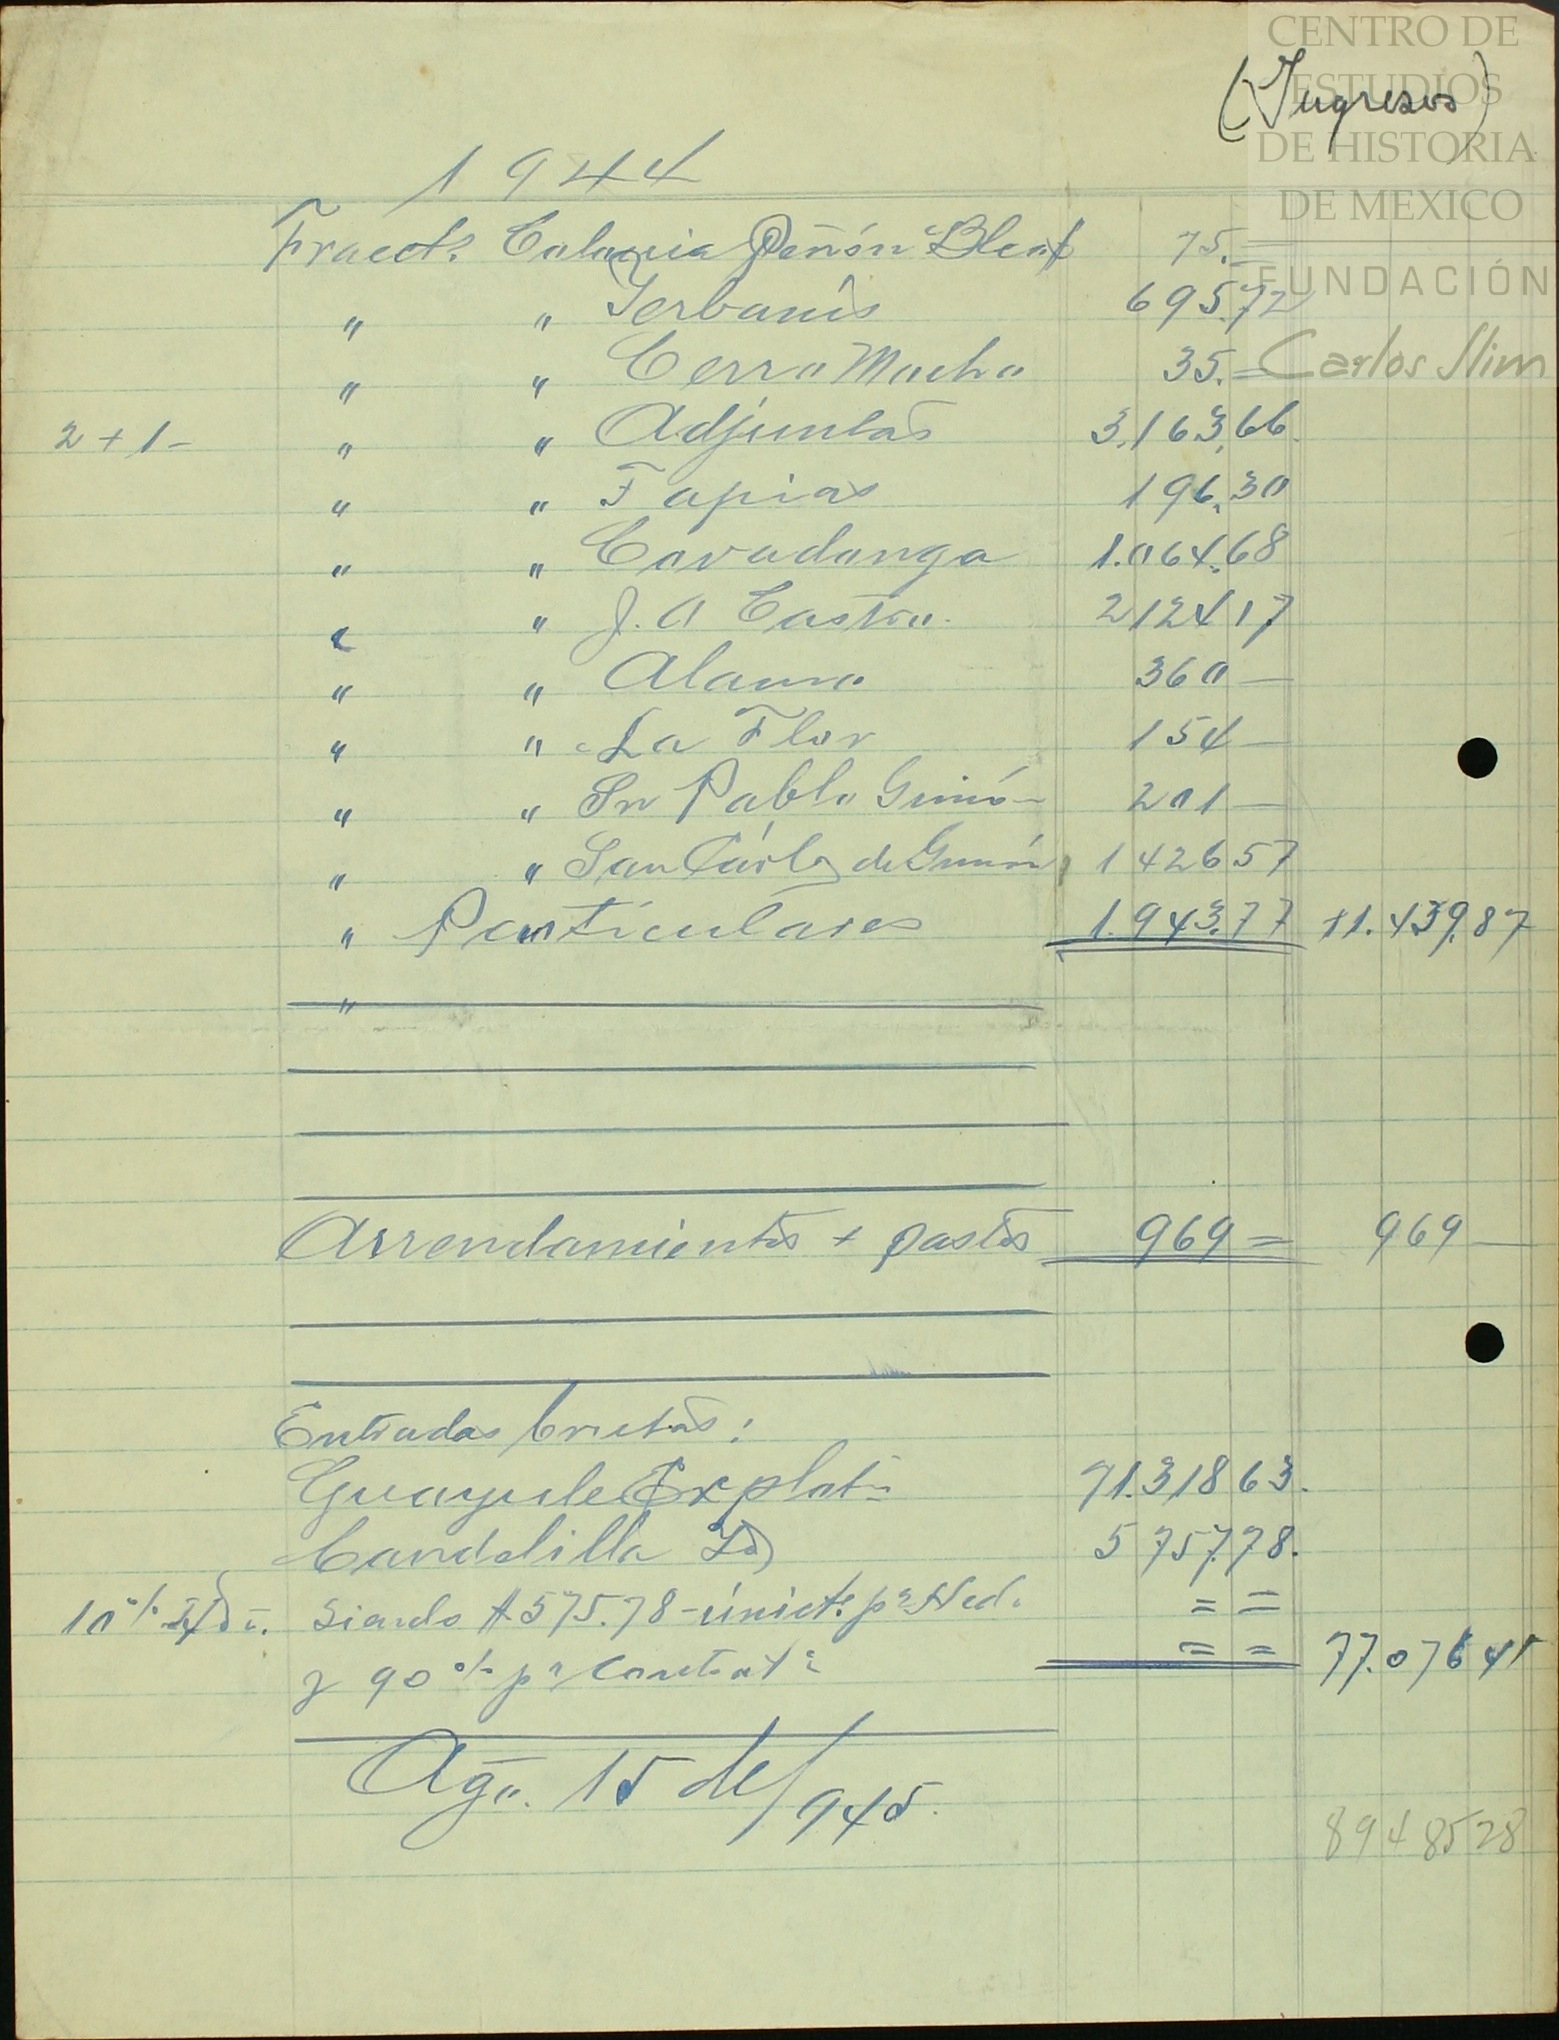 CENTRO DE
ESTUDIOS
DE HISTORIA
DE MEXICO
FUNDACIÓN
Carlos Slim
(Ingresos)
1944
Fracct? Colonia Peñón Blco 75.=
" " Yerbanis 695.72
" " Cerro Mocho 35.=
2+1- " " Adjuntas 3,163,66.
" " Tapias 196,30
" " Covadonga 1.064.68
" " J. A Castro. 212417
" " Alamo 360 —
" " La Flor 154 —
" " Sn Pablo 201 —
" " San Carlos de 142657
" Particulares 1.943.77 11.439,87
"
Arrendamientos + pastos 969 = 969 —
Entradas brutas:
Guayule Explotn 71.318 63.
Candelilla Id 5 757.78.
10% siendo $575.78- p? Ned. = =
y 90% pa Contrat? = = 77.076 41
Ago. 15 de/945.
8948528